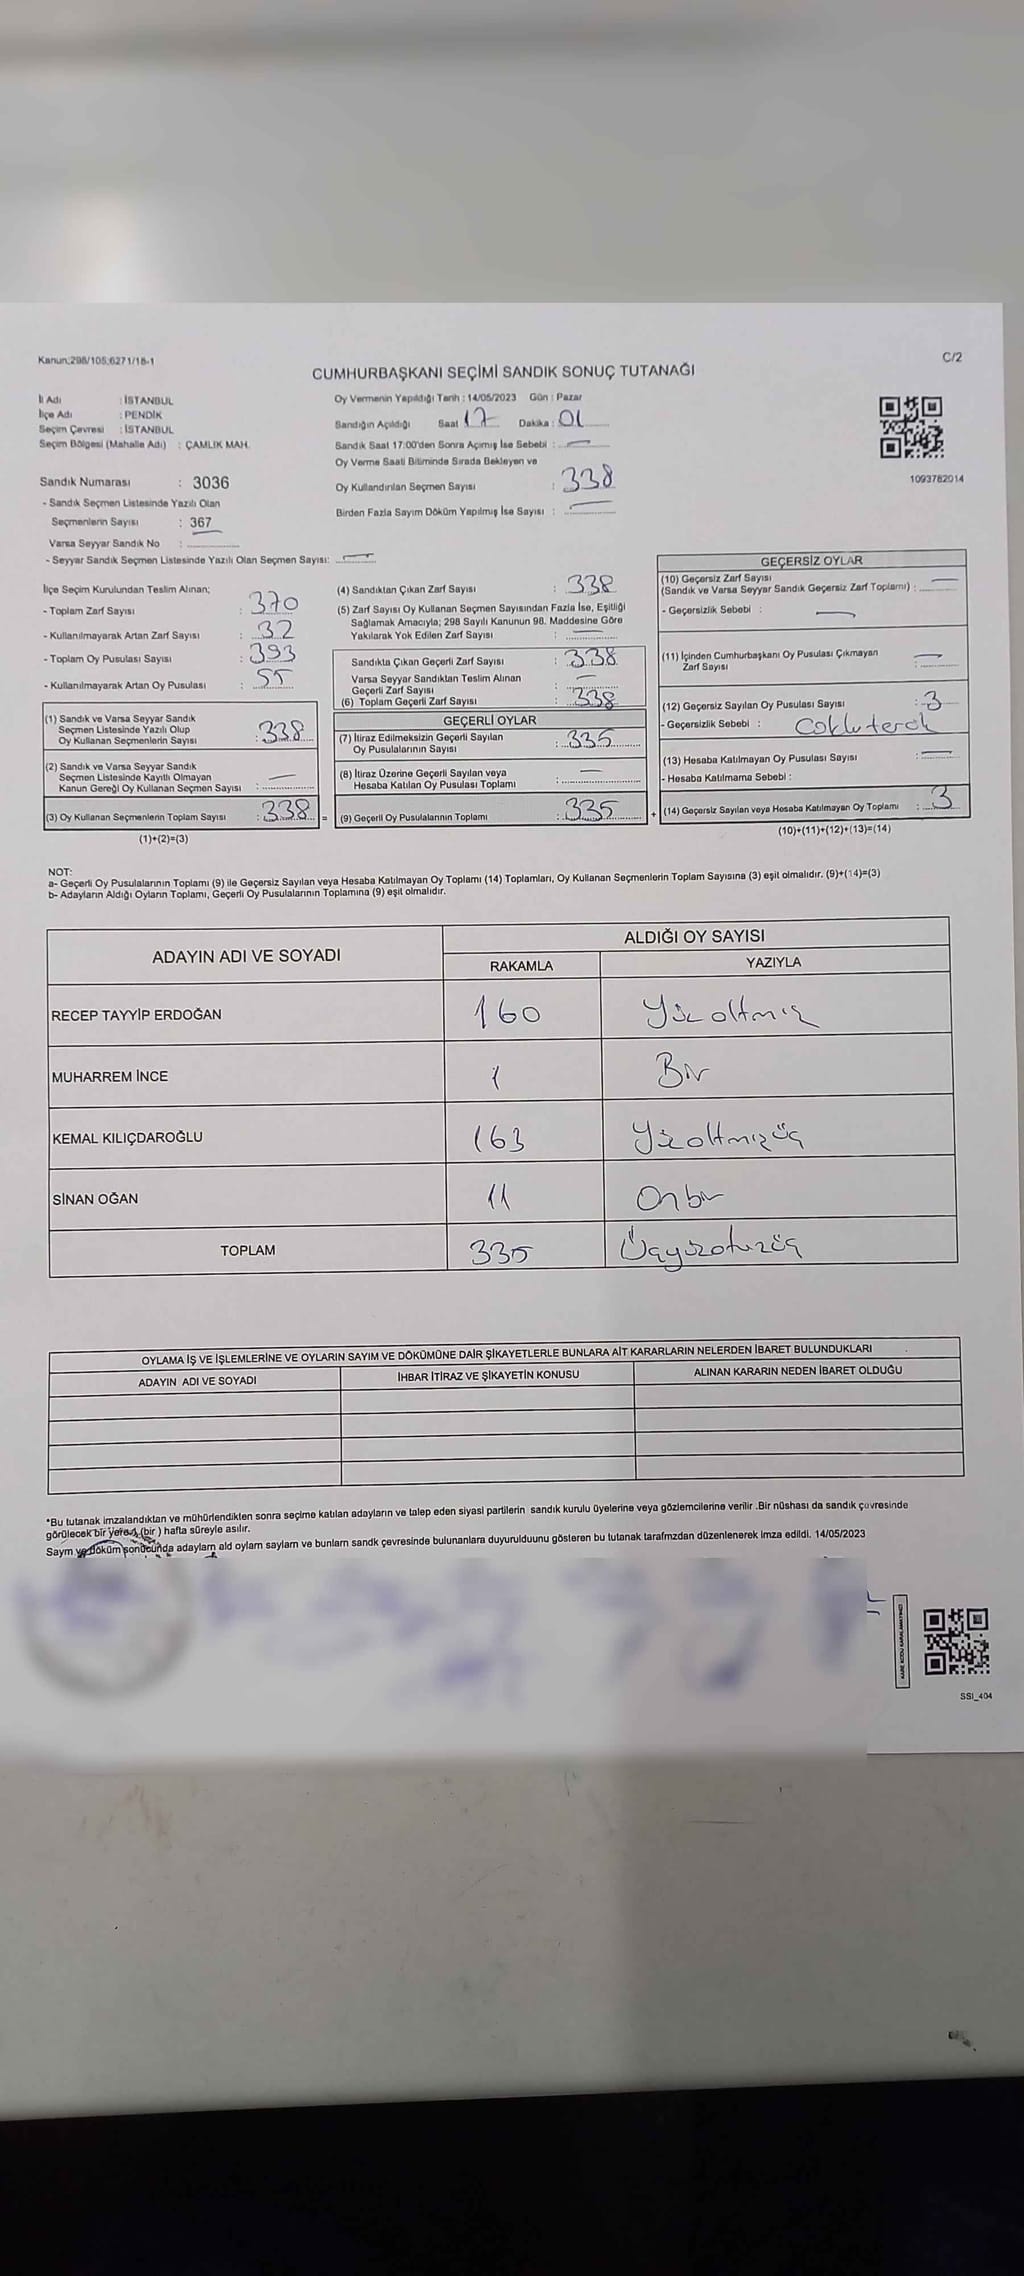 Kanun:298/105;6271/18-1
C/2
CUMHURBAŞKANI SEÇİMİ SANDIK SONUÇ TUTANAĞI
İl Adı : İSTANBUL
İlçe Adı : PENDİK
Seçim Çevresi : İSTANBUL
Seçim Bölgesi (Mahalle Adı) : ÇAMLIK MAH.
Oy Vermenin Yapıldığı Tarih : 14/05/2023 Gün : Pazar
Sandığın Açıldığı Saat 17 Dakika : 01
Sandık Saat 17:00'den Sonra Açımış İse Sebebi : —
Oy Verme Saati Bitiminde Sırada Bekleyen ve
Oy Kullandırılan Seçmen Sayısı : 338
Birden Fazla Sayım Döküm Yapılmış İse Sayısı : —
1093782014
Sandık Numarası : 3036
- Sandık Seçmen Listesinde Yazılı Olan
Seçmenlerin Sayısı : 367
Varsa Seyyar Sandık No :
- Seyyar Sandık Seçmen Listesinde Yazılı Olan Seçmen Sayısı: —
İlçe Seçim Kurulundan Teslim Alınan;
- Toplam Zarf Sayısı : 370
- Kullanılmayarak Artan Zarf Sayısı : 32
- Toplam Oy Pusulası Sayısı : 393
- Kullanılmayarak Artan Oy Pusulası : 55
(1) Sandık ve Varsa Seyyar Sandık
Seçmen Listesinde Yazılı Olup
Oy Kullanan Seçmenlerin Sayısı : 338
(2) Sandık ve Varsa Seyyar Sandık
Seçmen Listesinde Kayıtlı Olmayan
Kanun Gereği Oy Kullanan Seçmen Sayısı : —
(3) Oy Kullanan Seçmenlerin Toplam Sayısı : 338 =
(1)+(2)=(3)
(4) Sandıktan Çıkan Zarf Sayısı : 338
(5) Zarf Sayısı Oy Kullanan Seçmen Sayısından Fazla İse, Eşitliği
Sağlamak Amacıyla; 298 Sayılı Kanunun 98. Maddesine Göre
Yakılarak Yok Edilen Zarf Sayısı : —
Sandıkta Çıkan Geçerli Zarf Sayısı : 338
Varsa Seyyar Sandıktan Teslim Alınan
Geçerli Zarf Sayısı : —
(6) Toplam Geçerli Zarf Sayısı : 338
GEÇERLİ OYLAR
(7) İtiraz Edilmeksizin Geçerli Sayılan
Oy Pusulalarının Sayısı : 335
(8) İtiraz Üzerine Geçerli Sayılan veya
Hesaba Katılan Oy Pusulası Toplamı : —
(9) Geçerli Oy Pusulalarının Toplamı : 335 +
GEÇERSİZ OYLAR
(10) Geçersiz Zarf Sayısı
(Sandık ve Varsa Seyyar Sandık Geçersiz Zarf Toplamı) : —
- Geçersizlik Sebebi : —
(11) İçinden Cumhurbaşkanı Oy Pusulası Çıkmayan
Zarf Sayısı : —
(12) Geçersiz Sayılan Oy Pusulası Sayısı : 3
- Geçersizlik Sebebi : Coklu tercih
(13) Hesaba Katılmayan Oy Pusulası Sayısı : —
- Hesaba Katılmama Sebebi :
(14) Geçersiz Sayılan veya Hesaba Katılmayan Oy Toplamı : 3
(10)+(11)+(12)+(13)=(14)
NOT:
a- Geçerli Oy Pusulalarının Toplamı (9) ile Geçersiz Sayılan veya Hesaba Katılmayan Oy Toplamı (14) Toplamları, Oy Kullanan Seçmenlerin Toplam Sayısına (3) eşit olmalıdır. (9)+(14)=(3)
b- Adayların Aldığı Oyların Toplamı, Geçerli Oy Pusulalarının Toplamına (9) eşit olmalıdır.
ADAYIN ADI VE SOYADI
ALDIĞI OY SAYISI
RAKAMLA YAZIYLA
RECEP TAYYİP ERDOĞAN 160 Yüz altmış
MUHARREM İNCE 1 Bir
KEMAL KILIÇDAROĞLU 163 Yüz altmışüç
SİNAN OĞAN 11 On bir
TOPLAM 335 Üçyüzotuzüç
OYLAMA İŞ VE İŞLEMLERİNE VE OYLARIN SAYIM VE DÖKÜMÜNE DAİR ŞİKAYETLERLE BUNLARA AİT KARARLARIN NELERDEN İBARET BULUNDUKLARI
ADAYIN ADI VE SOYADI İHBAR İTİRAZ VE ŞİKAYETİN KONUSU ALINAN KARARIN NEDEN İBARET OLDUĞU
*Bu tutanak imzalandıktan ve mühürlendikten sonra seçime katılan adayların ve talep eden siyasi partilerin sandık kurulu üyelerine veya gözlemcilerine verilir .Bir nüshası da sandık çevresinde
görülecek bir yere 1 (bir ) hafta süreyle asılır.
Saym ve döküm sonucunda adaylarn ald oylarn saylarn ve bunlarn sandk çevresinde bulunanlara duyurulduunu gösteren bu tutanak tarafmzdan düzenlenerek imza edildi. 14/05/2023
KARE KODU KARALAMAYINIZ!
SSI_404